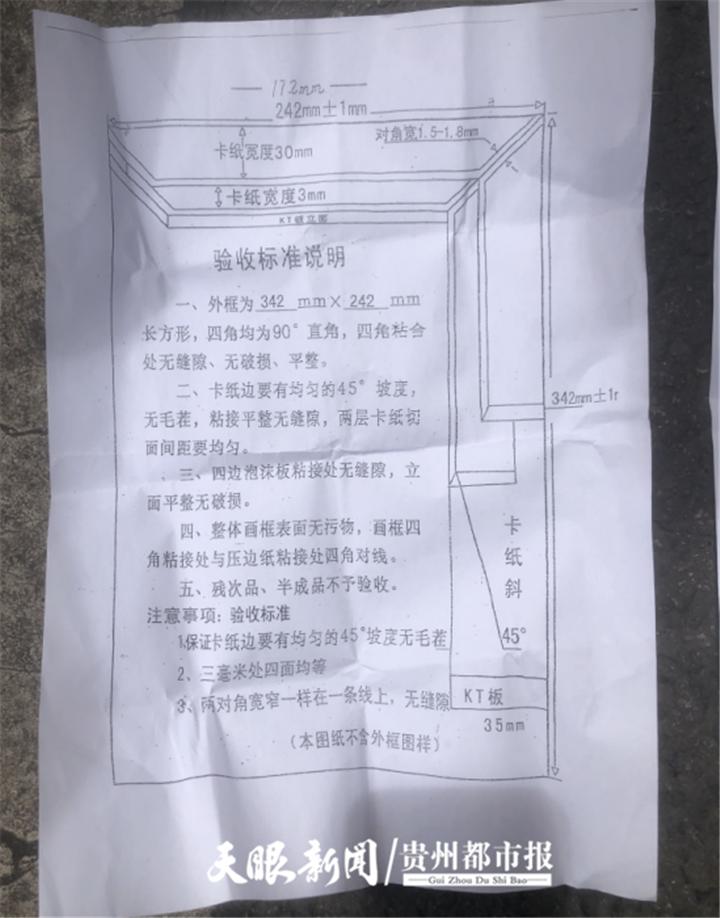 172mm
242mm±1mm
卡纸宽度30mm
对角宽1.5-1.8mm
卡纸宽度3mm
KT板立面
验收标准说明
一、外框为 342 mm× 242 mm
长方形，四角均为90°直角，四角粘合
处无缝隙、无破损、平整。
二、卡纸边要有均匀的45°坡度，
无毛茬，粘接平整无缝隙，两层卡纸切
面间距要均匀。
342mm±1
三、四边泡沫板粘接处无缝隙，立
面平整无破损。
四、整体画框表面无污物，画框四
角粘接处与压边纸粘接处四角对线。
五、残次品、半成品不予验收。
注意事项：验收标准
1、保证卡纸边要有均匀的45°坡度无毛茬
2、三毫米处四面均等
3、两对角宽窄一样在一条线上，无缝隙
（本图纸不含外框图样）
卡纸斜
45°
KT板
35mm
天眼新闻/贵州都市报
Gui Zhou Du Shi Bao